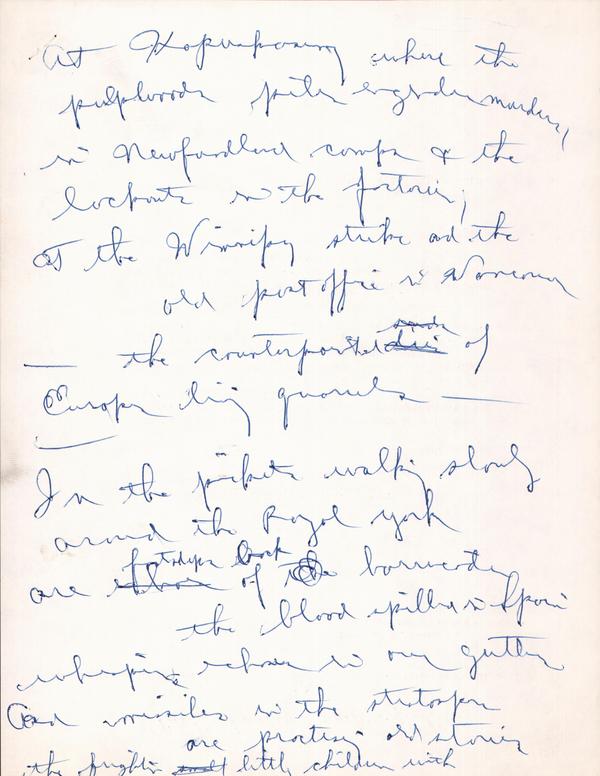 At Kapuskasing where the
pulpwood piles engender murders,
in Newfoundland camps & the
lockouts in the factories;
at the Winnipeg strike and the
old post office in Vancouver
— the of
Europe's living quarrels —
In the pickets walking slowly
around the Royal York
are footsteps back of the barricades
the blood spilled in Spain
whispering echoes in our gutters
And missiles in the stratosphere
are practising old stories
the frighten little children with